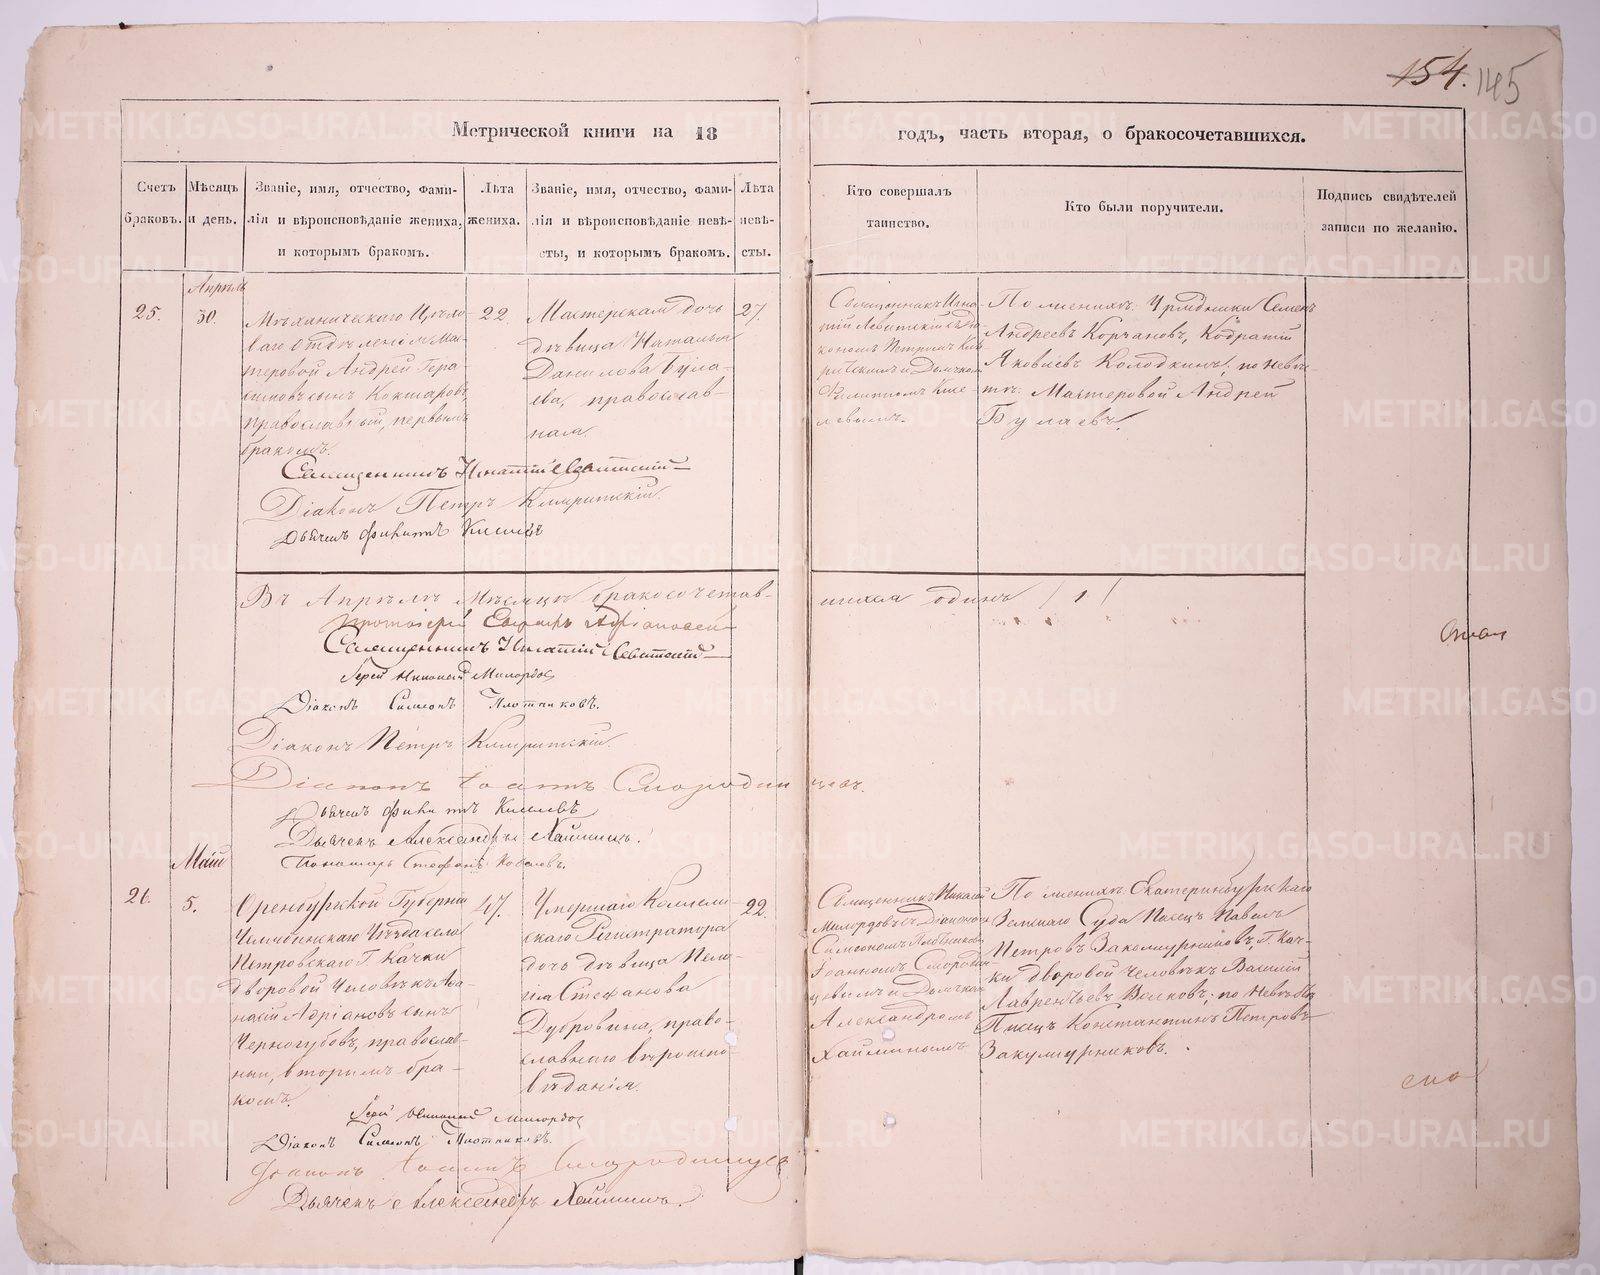 154. 145
Метрической книги на 18 годъ, часть вторая, о бракосочетавшихся.
Счетъ браковъ.
Мѣсяцъ и день.
Званіе, имя, отчество, фами-
лія и вѣроисповѣданіе жениха,
и которымъ бракомъ.
Лѣта жениха.
Званіе, имя, отчество, фами-
лія и вѣроисповѣданіе невѣ-
сты, и которымъ бракомъ.
Лѣта невѣ-
сты.
Кто совершалъ
таинство.
Кто были поручители.
Подпись свидѣтелей
записи по желанію.
Апрѣль
25.
30.
Мѣханическаго Цѣхо-
ваго Отдѣленія Мас-
теровой Андрей Гера-
симовъ сынъ Кокшаровъ
православный, первымъ
бракомъ.
22
Мастерская дочь
дѣвица Наталья
Данилова Була-
ева, православ-
ная
27
Священникъ Игна-
тій Левитскій съ Діа-
кономъ Петромъ
и Дьячкомъ
Кисе-
левымъ.
По женихѣ: Урядники Семенъ
Андреевъ Корчановъ, Кодратій
Яковлевъ Колодкинъ; по невѣс-
тѣ: Мастеровой Андрей
Булаевъ.
Священникъ Игнатій Левитскій
Діаконъ Петръ
Дьячекъ Киселевъ
Въ Апрѣлѣ мѣсяцѣ бракосочетав-
шихся одинъ / 1 /
Протоіерей
Священникъ Игнатій Левитскій
Іерей Николай Милордовъ
Діаконъ Симеонъ Плотниковъ.
Діаконъ Петръ
Діаконъ Іоаннъ Смородинцевъ.
Дьячекъ Киселевъ
Дьячекъ Александръ Хаминъ.
Пономарь Стефанъ Ковалевъ.
Май
26.
5.
Оренбургской Губерніи
Челябинскаго Уѣзда села
Петровскаго Г. Качки
дворовой человѣкъ Аѳа-
насій Адріановъ сынъ
Черногубовъ, православ-
ный, вторымъ бра-
комъ.
47.
Умершаго Коллеж-
скаго Регистратора
дочь дѣвица Пела-
гія Стефанова
Дубровина, право-
славнаго вѣроиспо-
вѣданія.
22
Священникъ Николай
Милордовъ съ Діаконами
Симеономъ Плотниковымъ
Іоанномъ Смородин-
цевымъ и Дьячкомъ
Александромъ
По женихѣ: Екатеринбургскаго
Земскаго Суда Писецъ Павелъ
Петровъ Закожурниковъ, Г. Кач-
ки дворовой человѣкъ Василій
Лаврентьевъ Волковъ; по невѣстѣ
Писецъ Константинъ Петровъ
Закожурниковъ.
Іерей Николай Милордовъ
Діаконъ Симеонъ Плотниковъ.
Діаконъ Іоаннъ Смородинцевъ
Дьячекъ Александръ Хаминъ.
METRIKI.GASO-URAL.RU